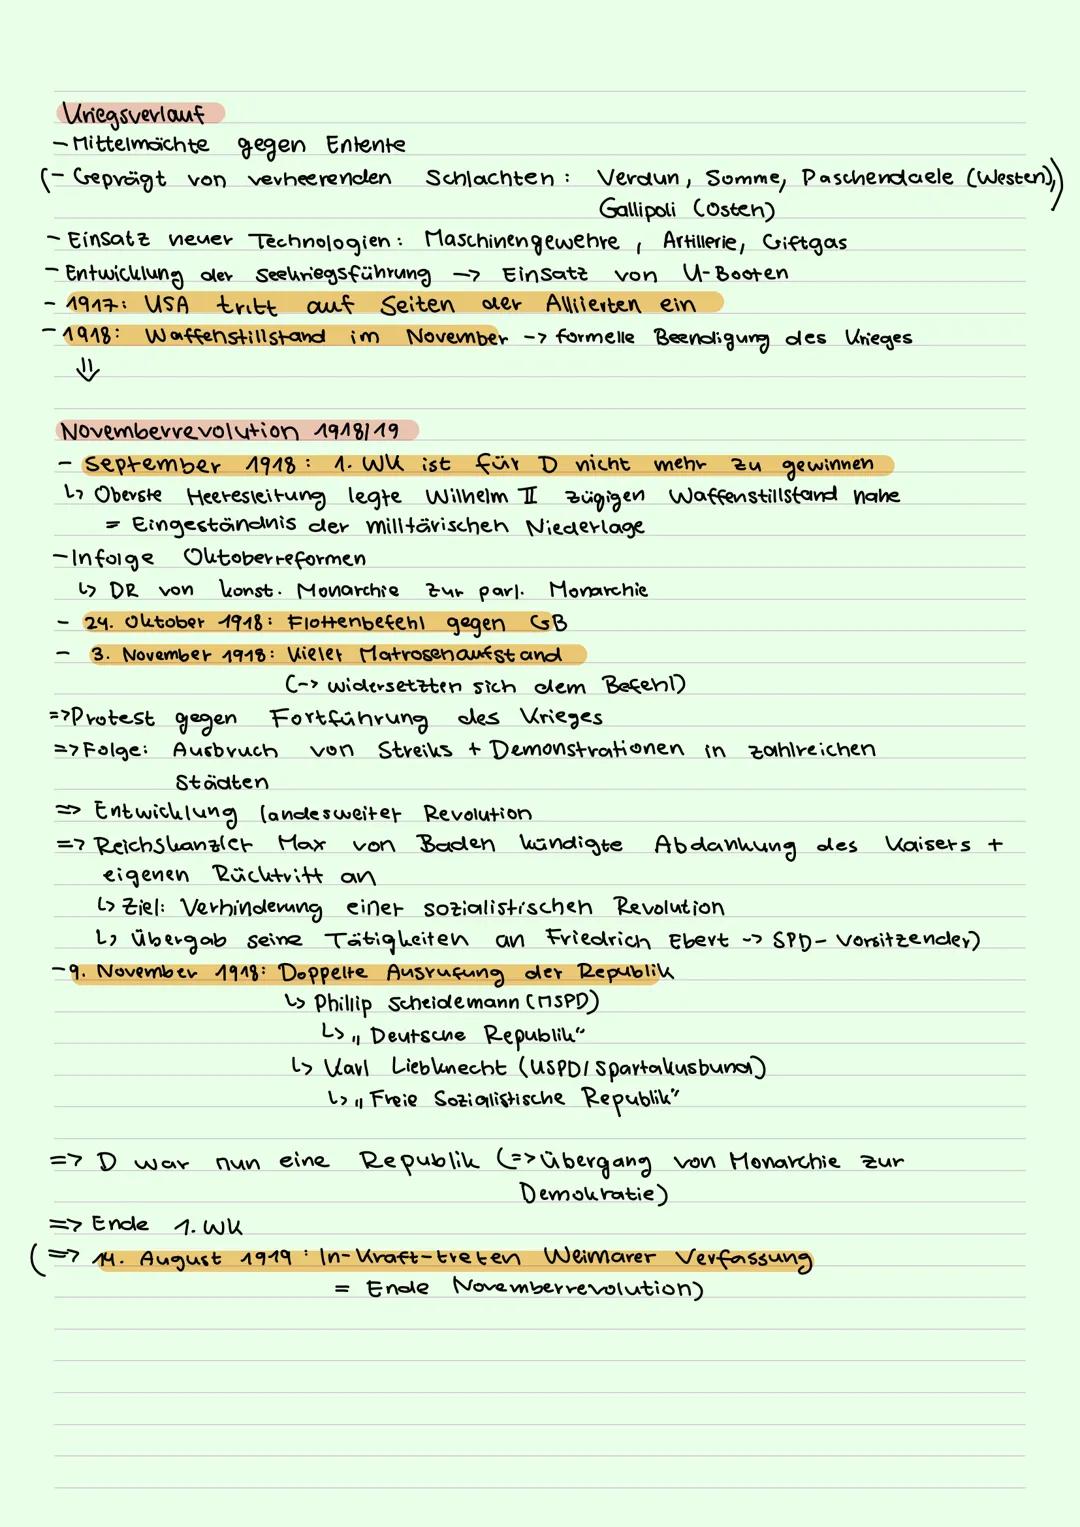 Kriegsverlauf
- Mittelmächte gegen Entente
(- Geprägt von verheerenden Schlachten: Verdun, Somme, Paschendaele (Westen),)
Gallipoli (Osten)
- Einsatz neuer Technologien: Maschinengewehre, Artillerie, Giftgas
- Entwicklung der Seekriegsführung -> Einsatz von U-Booten
- 1917: USA tritt auf Seiten der Alliierten ein
- 1918: Waffenstillstand im November -> formelle Beendigung des Krieges
⇓
Novemberrevolution 1918/19
- September 1918: 1. WK ist für D nicht mehr zu gewinnen
↳ Oberste Heeresleitung legte Wilhelm II zügigen Waffenstillstand nahe
= Eingeständnis der militärischen Niederlage
- Infolge Oktoberreformen
↳ DR von konst. Monarchie zur parl. Monarchie
- 24. Oktober 1918: Flottenbefehl gegen GB
- 3. November 1918: Kieler Matrosenaufstand
(-> widersetzten sich dem Befehl)
=> Protest gegen Fortführung des Krieges
=> Folge: Ausbruch von Streiks + Demonstrationen in zahlreichen
Städten
=> Entwicklung landesweiter Revolution
=> Reichskanzler Max von Baden kündigte Abdankung des Kaisers +
eigenen Rücktritt an
↳ Ziel: Verhinderung einer sozialistischen Revolution
↳ übergab seine Tätigkeiten an Friedrich Ebert -> SPD-Vorsitzender)
- 9. November 1918: Doppelte Ausrufung der Republik
↳ Phillip Scheidemann (MSPD)
↳ „Deutsche Republik“
↳ Karl Liebknecht (USPD/Spartakusbund)
↳ „Freie Sozialistische Republik“
=> D war nun eine Republik (=> Übergang von Monarchie zur
Demokratie)
=> Ende 1. WK
(=> 14. August 1919: In-Kraft-treten Weimarer Verfassung
= Ende Novemberrevolution)